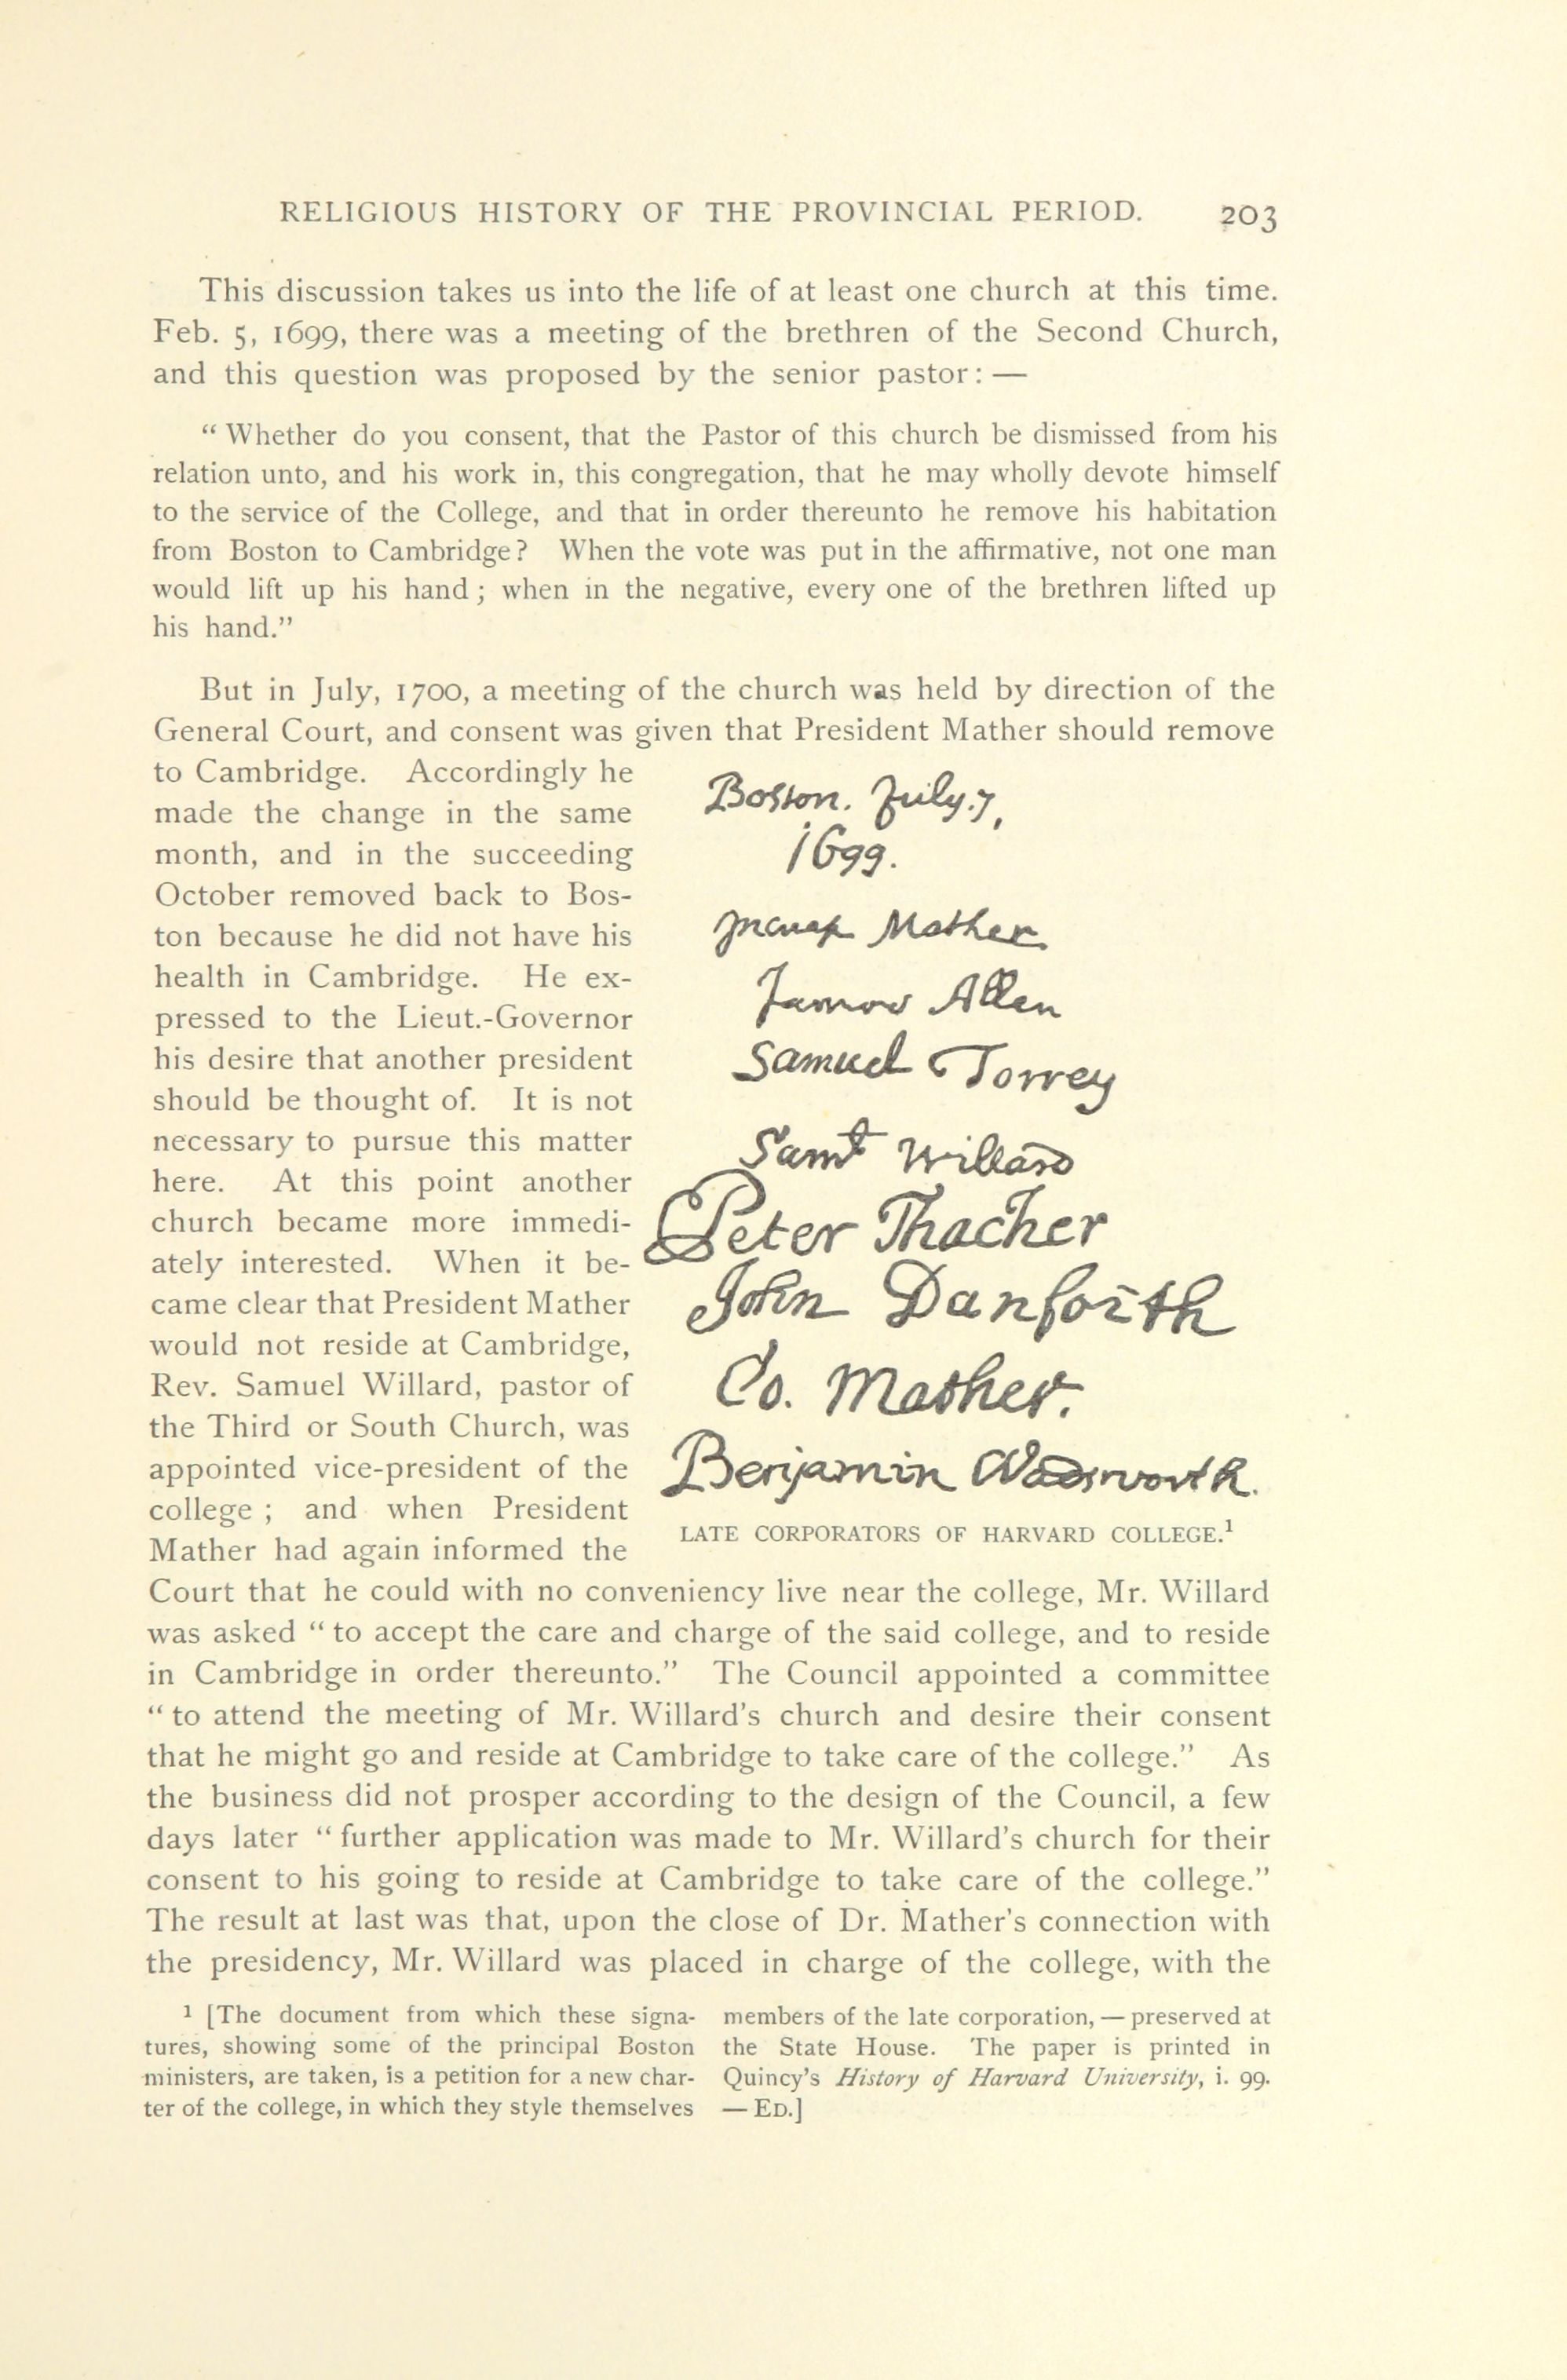 RELIGIOUS HISTORY OF THE PROVINCIAL PERIOD. 203
This discussion takes us into the life of at least one church at this time.
Feb. 5, 1699, there was a meeting of the brethren of the Second Church,
and this question was proposed by the senior pastor: —
“ Whether do you consent, that the Pastor of this church be dismissed from his
relation unto, and his work in, this congregation, that he may wholly devote himself
to the service of the College, and that in order thereunto he remove his habitation
from Boston to Cambridge? When the vote was put in the affirmative, not one man
would lift up his hand; when in the negative, every one of the brethren lifted up
his hand.”
But in July, 1700, a meeting of the church was held by direction of the
General Court, and consent was given that President Mather should remove
to Cambridge. Accordingly he
made the change in the same
month, and in the succeeding
October removed back to Bos-
ton because he did not have his
health in Cambridge. He ex-
pressed to the Lieut.-Governor
his desire that another president
should be thought of. It is not
necessary to pursue this matter
here. At this point another
church became more immedi-
ately interested. When it be-
came clear that President Mather
would not reside at Cambridge,
Rev. Samuel Willard, pastor of
the Third or South Church, was
appointed vice-president of the
college; and when President
Mather had again informed the
Boston. July.7,
1699.
Increase Mather
James Allen
Samuel Torrey
Saml Willard
Peter Thacher
John Danforth
Co. Mather.
Benjamin Wadsworth.
LATE CORPORATORS OF HARVARD COLLEGE.¹
Court that he could with no conveniency live near the college, Mr. Willard
was asked “ to accept the care and charge of the said college, and to reside
in Cambridge in order thereunto.” The Council appointed a committee
“ to attend the meeting of Mr. Willard’s church and desire their consent
that he might go and reside at Cambridge to take care of the college.” As
the business did not prosper according to the design of the Council, a few
days later “ further application was made to Mr. Willard’s church for their
consent to his going to reside at Cambridge to take care of the college.”
The result at last was that, upon the close of Dr. Mather’s connection with
the presidency, Mr. Willard was placed in charge of the college, with the
¹ [The document from which these signa-
tures, showing some of the principal Boston
ministers, are taken, is a petition for a new char-
ter of the college, in which they style themselves
members of the late corporation, — preserved at
the State House. The paper is printed in
Quincy’s History of Harvard University, i. 99.
— ED.]